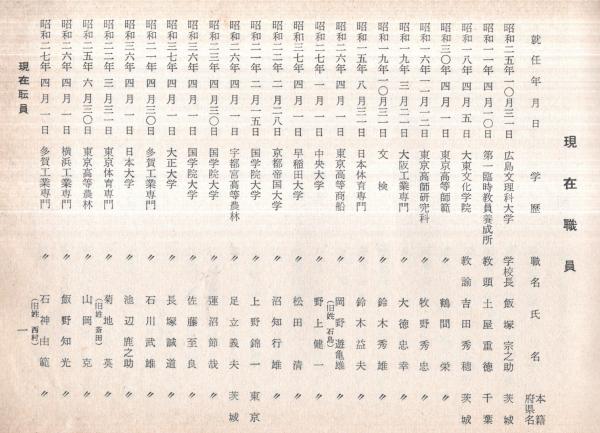 現在職員
就任年月日 学歴 職名 氏名 本籍府県名
昭和二五年一〇月三一日 広島文理科大学 学校長 飯塚宗之助 茨城
昭和一一年四月一〇日 第一臨時教員養成所 教頭 土屋重徳 千葉
昭和一八年四月五日 大東文化学院 教諭 吉田秀穂 茨城
昭和三〇年四月一日 東京高等師範 〃 鶴間栄 〃
昭和一六年一一月一二日 東京高師研究科 〃 牧野秀忠 〃
昭和一九年三月二一日 大阪工業専門 〃 大徳忠幸 〃
昭和一九年一〇月三日 文検 〃 鈴木秀雄 〃
昭和一五年八月三一日 日本体育専門 〃 鈴木益夫 〃
昭和二六年四月一日 東京高等商船 〃 岡野遊亀雄 〃
(旧姓 石島)
昭和二七年一月一日 中央大学 〃 野上健一 〃
昭和三七年四月一日 早稲田大学 〃 松田清 〃
昭和二二年二月二八日 京都帝国大学 〃 沼知行雄 〃
昭和二一年二月一五日 国学院大学 〃 上野錦一 東京
昭和二六年四月一日 宇都宮高等農林 〃 足立義夫 茨城
昭和二三年四月三〇日 国学院大学 〃 蓮沼節哉 〃
昭和三六年四月一日 国学院大学 〃 佐藤至良 〃
昭和三七年四月一日 大正大学 〃 長塚誠道 〃
昭和二一年四月三〇日 多賀工業専門 〃 石川武雄 〃
昭和三六年四月一日 日本大学 〃 池辺鹿之助 〃
昭和二二年三月三一日 東京体育専門 〃 菊地英 〃
(旧姓 斎田)
昭和二五年六月三〇日 東京高等農林 〃 山岡克 〃
昭和二六年四月一日 横浜工業専門 〃 飯野知光 〃
昭和二七年四月一日 多賀工業専門 〃 石神由範 〃
(旧姓 西村)
現在職員
一